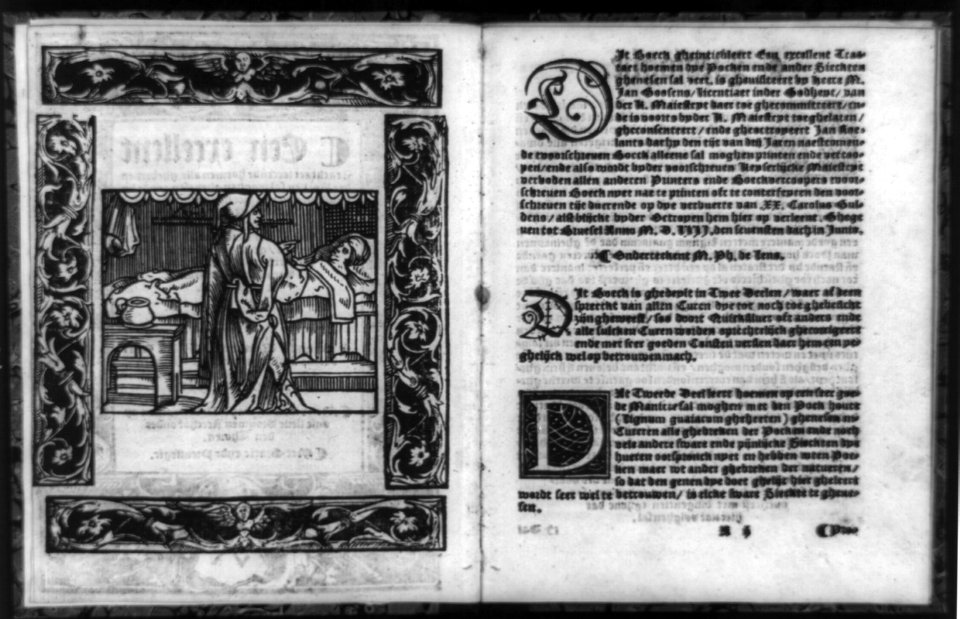 DIt Boeck Gheintituleert Een excellent Trac-
taet hoemen dye Pocken ende ander Sieckten
ghenesen sal
Jan Goosens / licentiaet inder Godheyt / van
der K. Maiesteyt daer toe ghecommitteert / en-
de is voorts by der K. Maiesteyt toeghelaten /
gheconsenteert / ende gheoctroyeert Jan Roe-
lants dat hy den tijt van
de voorschreven Boeck alleene sal moghen printen ende vercoo-
pen / ende also wordt by der voorschreven Keyserlijcke Maiesteyt
verboden allen anderen Printers ende Boeckvercoopers voor-
schreven Boeck nyet nae te printen oft te conterfeyten den voor-
schreven tijt duerende op dye verbuerte van XX. Carolus Gul-
dens / als blijckt by der Octroyen hem hier op verleent. Ghege
ven tot Bruesel Anno M. D. den sevensten dach in Junio.
¶ Onderteekent M. Ph. de Lens.
DIt Boeck is ghedeylt in Twee Deelen / waer af hem
spreeckt van allen Curen dye tot noch toe ghebesicht
zijn gheweest / soo door Quicksilver oft anders ende
alle sulcken Curen worden oprechtelijck
ende met seer goeden Consten
ghelijck wel op betrouwen mach.
DAt Tweede Deel leert hoemen op een seer goe-
de Maniere sal moghen met den Pock houte
(Lignum guaiacum gheheeten) ghenesen en
Cureren alle ghebreken der Pocken ende noch
vele andere sware ende pijnlijcke Sieckten dye
hueren oorspronck nyet en hebben
ken maer wt ander ghebreken der natueren /
so dat den genen dye doer ghelijc hier gheleert
wordt seer wel te betrouwen / is elcke sware Sieckte te ghene-
sen.